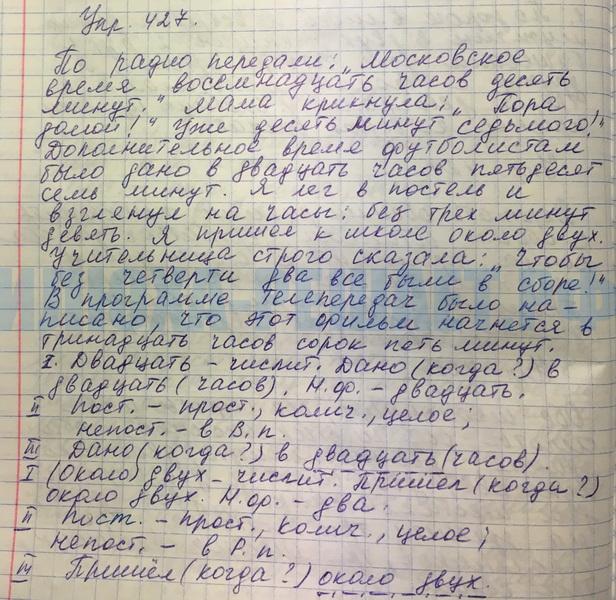 Упр. 427.
По радио передали: „Московское
время восемнадцать часов десять
минут." Мама крикнула: „Пора
домой!" Уже десять минут седьмого!"
Дополнительное время футболистам
было дано в двадцать часов пятьдесят
семь минут. Я лег в постель и
взглянул на часы: без трех минут
девять. Я пришел к школе около двух.
Учительница строго сказала: „Чтобы
без четверти два все были в сборе!"
В программе телепередач было на-
писано, что этот фильм начнется в
тринадцать часов сорок пять минут.
I. Двадцать - числит. Дано (когда?) в
двадцать (часов). Н.ф. - двадцать.
II Пост. - прост., колич., целое;
непост. - в В.п.
III Дано (когда?) в двадцать (часов).
I (Около) двух - числит. Пришел (когда?)
около двух. Н.ф. - два.
II Пост. - прост., колич., целое;
непост. - в Р.п.
III Пришёл (когда?) около двух.